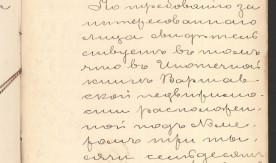 По требованію за
интересованнаго
лица свидѣтель
ствуетъ въ томъ
что въ Ипотечной
книгѣ Варшав
ской недвижимо
сти расположен
ной подъ Номе
ромъ три ты
сячи семьдесятъ